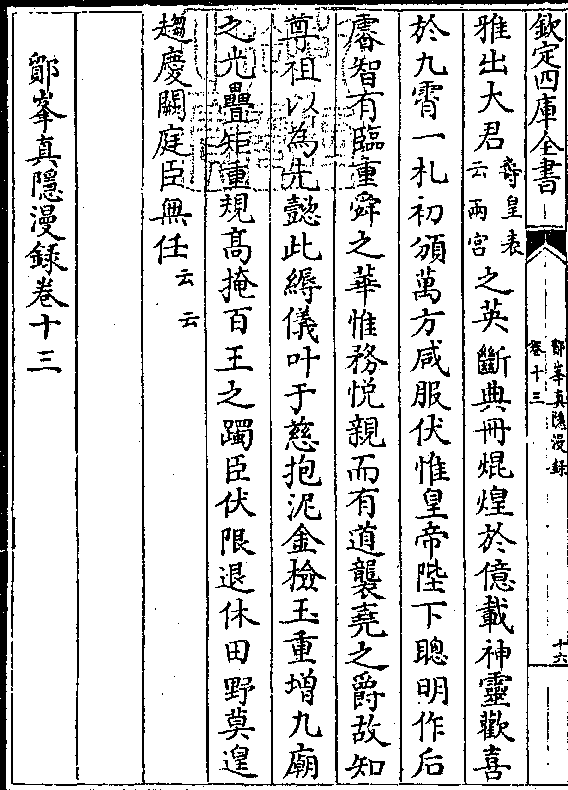 欽定四庫全書
鄮峯真隱漫録
卷十三
十六
雅出大君壽皇表云兩宮之英斷典冊焜煌於億載神靈歡喜
於九霄一札初頒萬方咸服伏惟皇帝陛下聰明作后
睿智有臨重舜之華惟務悦親而有道襲堯之爵故知
尊祖以為先懿此縟儀叶于慈抱泥金檢玉重增九廟
之光疊矩重規高掩百王之躅臣伏限退休田野莫遑
趨慶闕庭臣無任云云
鄮峯真隱漫録卷十三